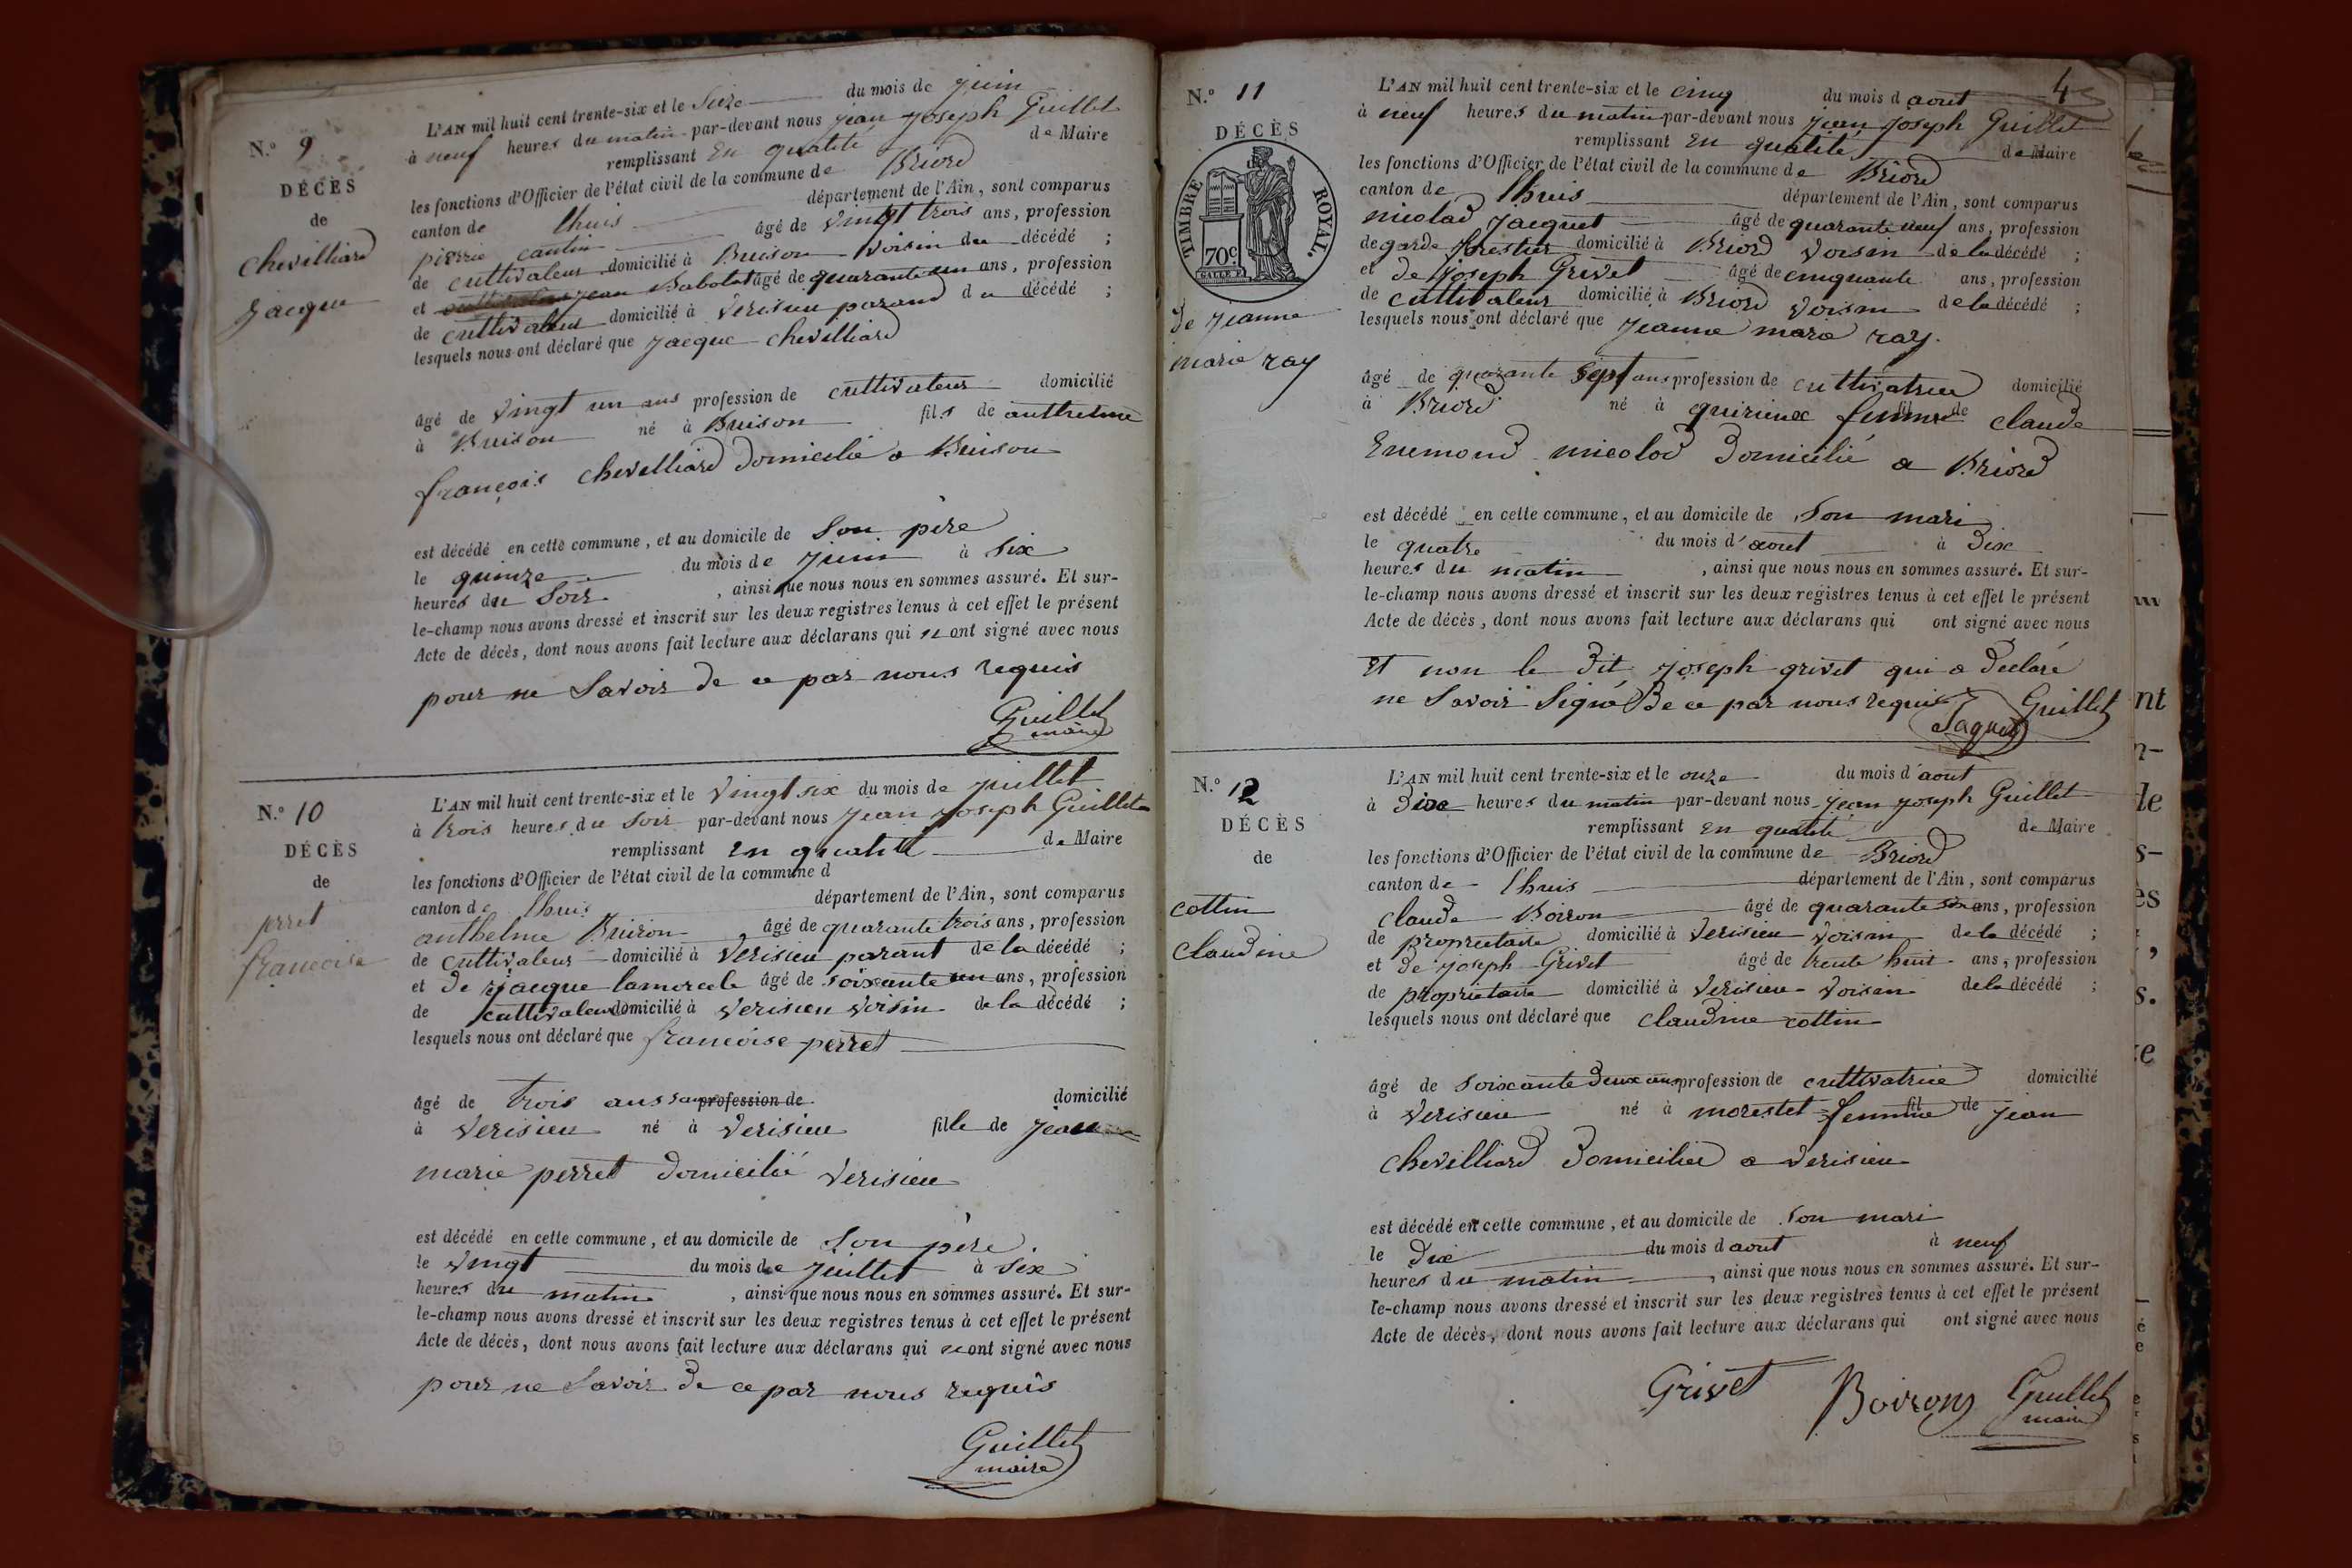 N.º 9
DÉCÈS
de
chevilliard
Jacque
L'AN mil huit cent trente-six et le Seize du mois de Juin
à neuf heures du matin par-devant nous Jean Joseph Guillet
remplissant En qualité de Maire
les fonctions d'Officier de l'état civil de la commune de Briord
canton de lhuis département de l'Ain, sont comparus
pierre cautin âgé de vingt trois ans, profession
de cultivateur domicilié à Buison voisin du décédé ;
et Jean Babolat âgé de quarante un ans, profession
de cultivateur domicilié à Verisieu parand du décédé ;
lesquels nous ont déclaré que Jacque chevilliard
âgé de vingt un ans profession de cultivateur domicilié
à Buison né à Buison fils de anthelme
françois chevilliard domicilié a Buison
est décédé en cette commune, et au domicile de Son père
le quinze du mois de Juin à six
heures du Soir, ainsi que nous nous en sommes assuré. Et sur-
le-champ nous avons dressé et inscrit sur les deux registres tenus à cet effet le présent
Acte de décès, dont nous avons fait lecture aux déclarans qui n ont signé avec nous
pour ne Savoir de ce par nous requis
Guillet
maire
N.º 10
DÉCÈS
de
prret
francoise
L'AN mil huit cent trente-six et le vingt six du mois de Juillet
à trois heures du Soir par-devant nous Jean Joseph Guillet
remplissant En qualité de Maire
les fonctions d'Officier de l'état civil de la commune d
canton de lhuis département de l'Ain, sont comparus
anthelme Buiron âgé de quarante trois ans, profession
de cultivateur domicilié à Verisieu parant de la décédé ;
et de Jacque lamorale âgé de soixante un ans, profession
de cultivateur domicilié à Verisieu voisin de la décédé ;
lesquels nous ont déclaré que françoise perret
âgé de trois ans sans profession de domicilié
à Verisieu né à Verisieu fille de Jean
marie perret domicilié Verisieu
est décédé en cette commune, et au domicile de Son père
le vingt du mois de Juillet à six
heures du matin, ainsi que nous nous en sommes assuré. Et sur-
le-champ nous avons dressé et inscrit sur les deux registres tenus à cet effet le présent
Acte de décès, dont nous avons fait lecture aux déclarans qui n ont signé avec nous
pour ne Savoir de ce par nous requis
Guillet
maire
N.º 11
DÉCÈS
TIMBRE ROYAL.
70c
de Jeanne
marie ray
L'AN mil huit cent trente-six et le cinq du mois d aout
à neuf heures du matin par-devant nous Jean Joseph Guillet
remplissant En qualité de Maire
les fonctions d'Officier de l'état civil de la commune de Briord
canton de lhuis département de l'Ain, sont comparus
nicolad Jacquet âgé de quarante neuf ans, profession
de garde forestier domicilié à Briord voisin de la décédé ;
et de Joseph Grivet âgé de cinquante ans, profession
de cultivateur domicilié à Briord voisin de la décédé ;
lesquels nous ont déclaré que Jeanne marie ray.
âgé de quarante sept ans profession de cultivatrice domicilié
à Briord né à quirieux femme de claude
Enemond nicolod domicilié a Briord
est décédé en cette commune, et au domicile de Son mari
le quatre du mois d'aout à dix
heures du matin, ainsi que nous nous en sommes assuré. Et sur-
le-champ nous avons dressé et inscrit sur les deux registres tenus à cet effet le présent
Acte de décès, dont nous avons fait lecture aux déclarans qui ont signé avec nous
et non le dit Joseph grivet qui a declaré
ne Savoir Signé de ce par nous requis
Jaquet
Guillet
N.º 12
DÉCÈS
de
cottin
claudine
L'AN mil huit cent trente-six et le onze du mois d'aout
à dixe heures du matin par-devant nous Jean Joseph Guillet
remplissant En qualité de Maire
les fonctions d'Officier de l'état civil de la commune de Briord
canton de lhuis département de l'Ain, sont comparus
claude Boiron âgé de quarante six ans, profession
de propriétaire domicilié à Verisieu voisin de la décédé ;
et de Joseph Grivet âgé de trente huit ans, profession
de propriétaire domicilié à Verisieu voisin de la décédé ;
lesquels nous ont déclaré que claudine cottin
âgé de soixante deux ans profession de cultivatrice domicilié
à Verisieu né à morestel femme de jean
chevilliard domicilié a Verisieu
est décédé en cette commune, et au domicile de Son mari
le dix du mois d aout à neuf
heures du matin, ainsi que nous nous en sommes assuré. Et sur-
le-champ nous avons dressé et inscrit sur les deux registres tenus à cet effet le présent
Acte de décès, dont nous avons fait lecture aux déclarans qui ont signé avec nous
Grivet Boiron Guillet
maire